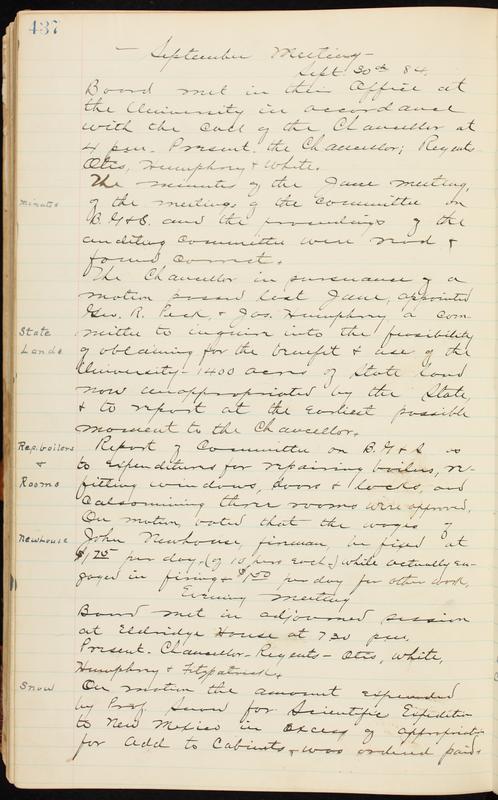 437
- September Meeting -
Sept. 30th 84.
Board met in their Office at
the University in accordance
with the call of the Chancellor at
4 p.m. Present. the Chancellor; Regents
Otis, Humphry & White.
The minutes of the June meeting,
minutes
of the meetings of the Committee on
B. G. & S. and the proceedings of the
auditing Committee were read &
found correct.
The Chancellor in pursuance of a
motion passed last June, appointed
Geo. R. Peck, & Jas. Humphry a com
State
Lands
mittee to inquire into the feasibility
of obtaining for the benefit & use of the
University 1400 acres of State land
now unappropriated by the State,
& to report at the earliest possible
moment to the Chancellor.
Rep. boilers
&
Rooms
Report of Committee on B. G & S. as
to expenditures for repairing boilers, re-
fitting windows, doors & locks, and
Calsomining three rooms were approved.
On motion, voted that the wages of
Newhouse
John Newhouse, fireman, be fixed at
$1.75 per day, (of 10 hours each,) while actually en-
gaged in firing & $1.50 per day for other work.
Evening Meeting
Board met in adjourned session
at Eldridge House at 7 30 p.m.
Present. Chancellor - Regents - Otis, White,
Humphry & Fitzpatrick.
Snow
On motion the amount expended
by Prof Snow for Scientific Expedition
to New Mexico in excess of appropriat-
for add to Cabinets, was ordered paid.